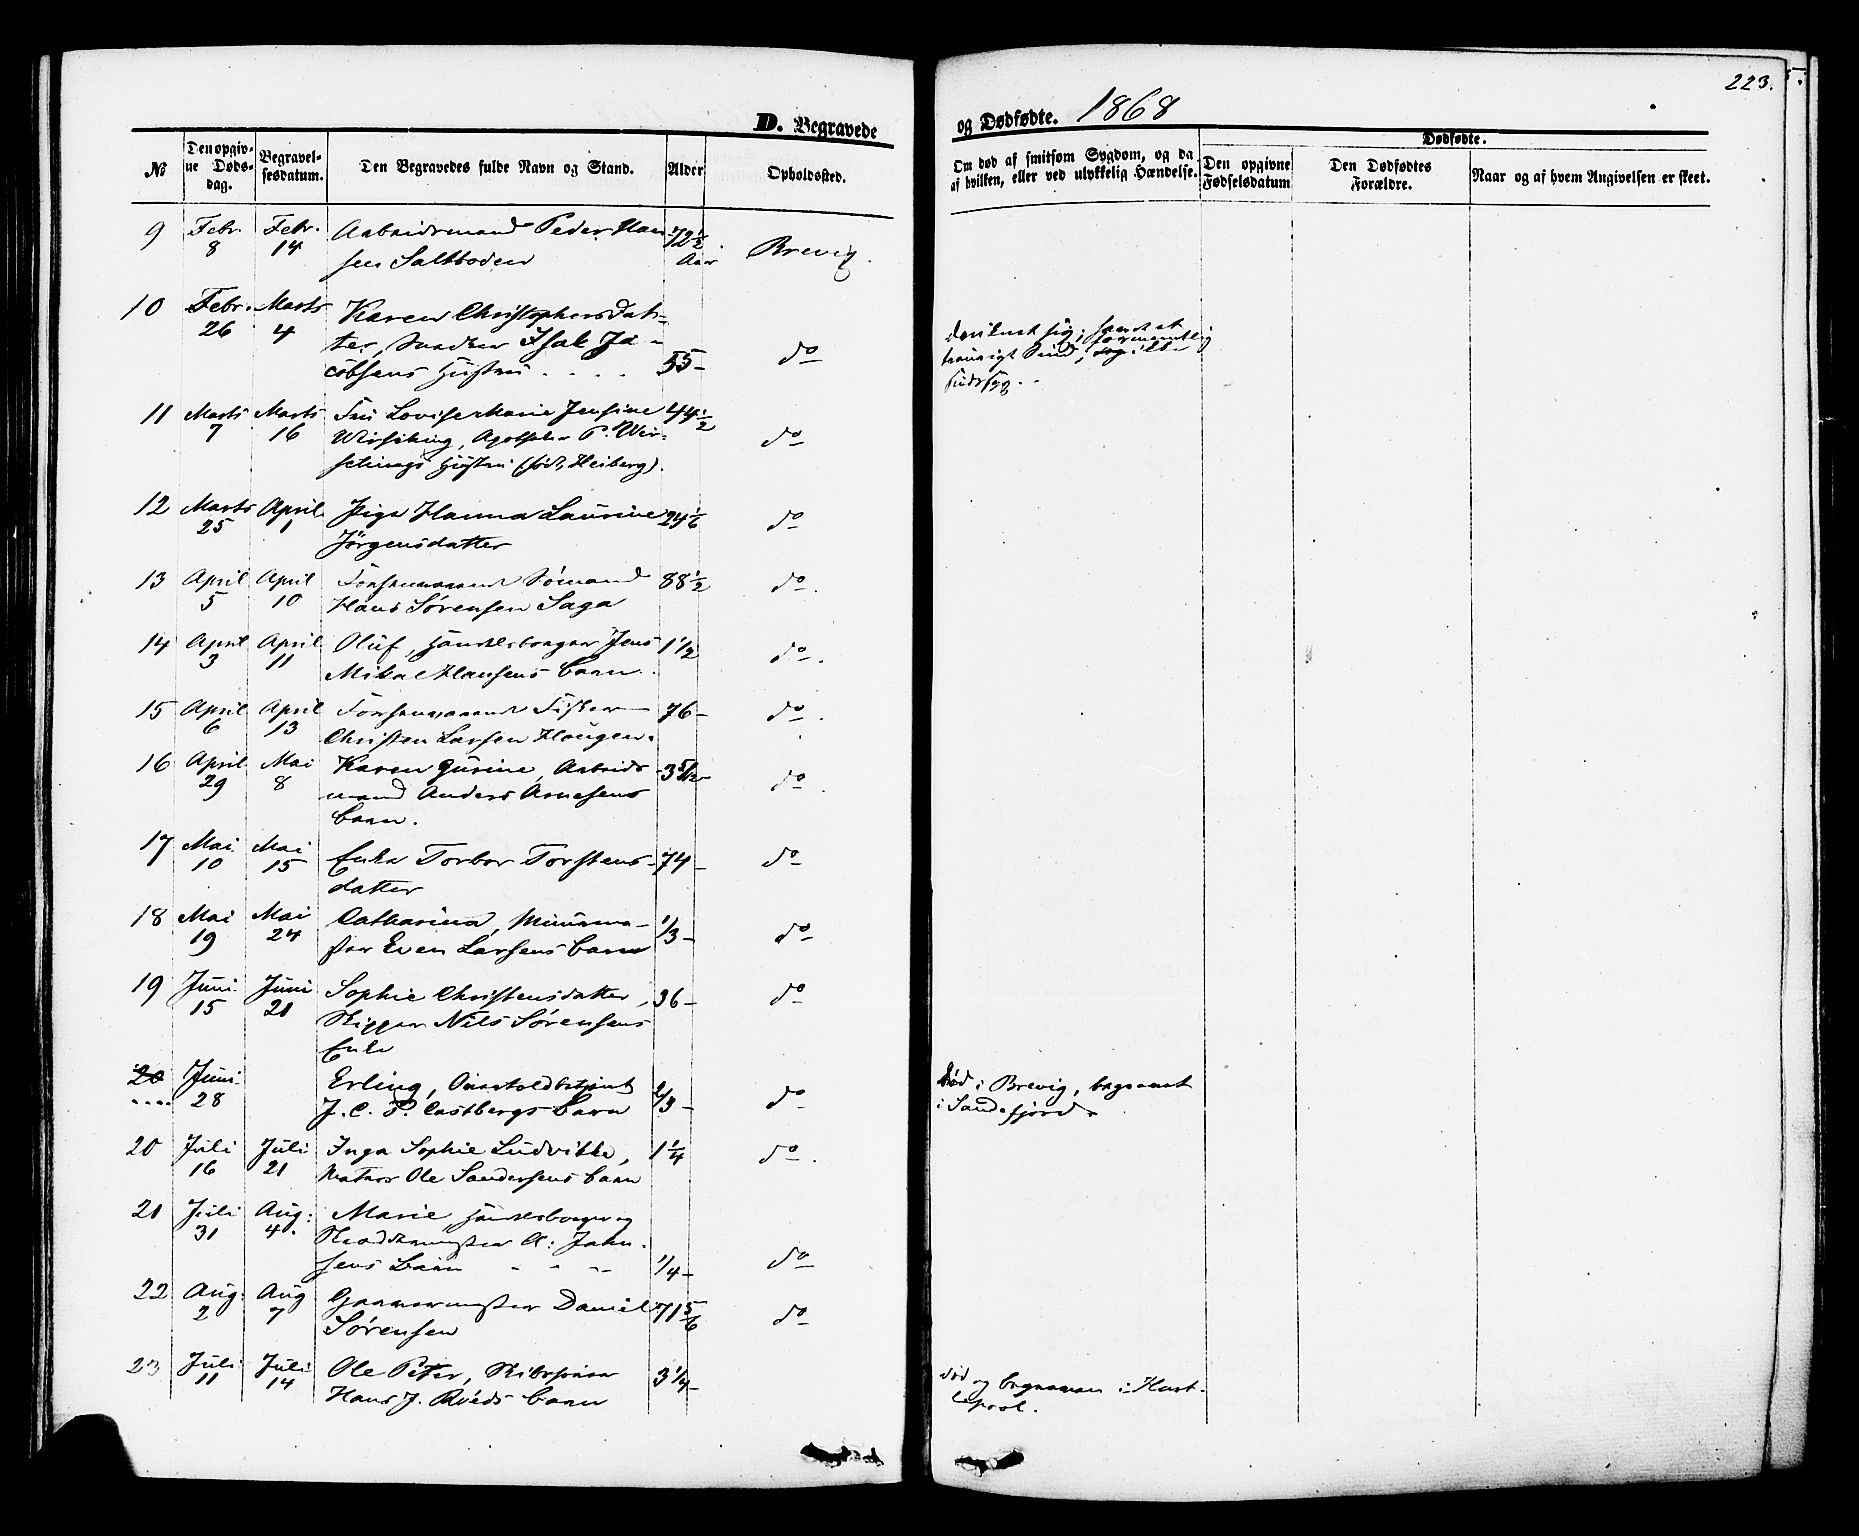 223.
D. Begravede
og Dødfødte. 1868
No
Den opgivne Dødsdag.
Begravelsesdatum.
Den Begravedes fulde Navn og Stand.
Alder
Opholdssted.
Om død af smitsom Sygdom, og da af hvilken, eller ved ulykkelig Hændelse.
Dødfødte.
Den opgivne Fødselsdatum
Den Dødfødtes Forældre.
Naar og af hvem Angivelsen er skeet.
9 Febr. 8 Febr. 14 Arbeidsmand Peder Han 72 1/2 Aar Brevig.
sen Saltboden
10 Febr. 26 Marts 4 Karen Christophersdat-
ter, Snedker Isak Ja-
cobsens Hustru . . . . 55 – do
11 Marts 7 Marts 16 Fru Lovise Marie Jensine 44 1/2 do
P. Wir-
Hustru (født Heiberg).
12 Marts 25 April 1 Pige Hanna Laurine 24 1/6 do
Jörgensdatter
13 April 5 April 10 Forhenværende Sömand 88 1/2 do.
Hans Sörensen Saga
14 April 3 April 11 Oluf, Handelsborger Jens 1 1/2 do.
Mikal Hansens Barn.
15 April 6 April 13 Forhenværende Fisker 76 – do.
Christen Larsen Haugen.
16 April 29 Mai 8 Karen Gurine, Arbeids 3 5/12 do.
mand Anders Arnesens
Barn.
17 Mai 10 Mai 15 Enke Torbor Torstens- 74 – do
datter
18 Mai 19 Mai 24 Catharina, Murme- 1/3 – do
ster Even Larsens Barn
19 Juni 15 Juni 21 Sophie Christensdatter, 36 – do
Skipper Nils Sörensens
Enke
20 Juni 28 Erling, 2/3 – do Død i Brevig, begravet
J. C. T. Castbergs Barn i Sandefjord.
20 Juli 16 Juli 21 Inga Sophie Ludvikke, 1 1/4 do.
Matros Ole Sandersens Barn
21 Juli 31 Aug: 4. Marie, Handelsborger og
A: Jahn-
sens Barn 1/4 – do
22 Aug: 2 Aug 7 Garvermester Daniel 71 5/6 do
Sörensen
23 Juli 11 Juli 14 Ole Peter, Skibsfører 3 1/4 – død og begraven i Hart-
Hans J. Röeds Barn lepool.